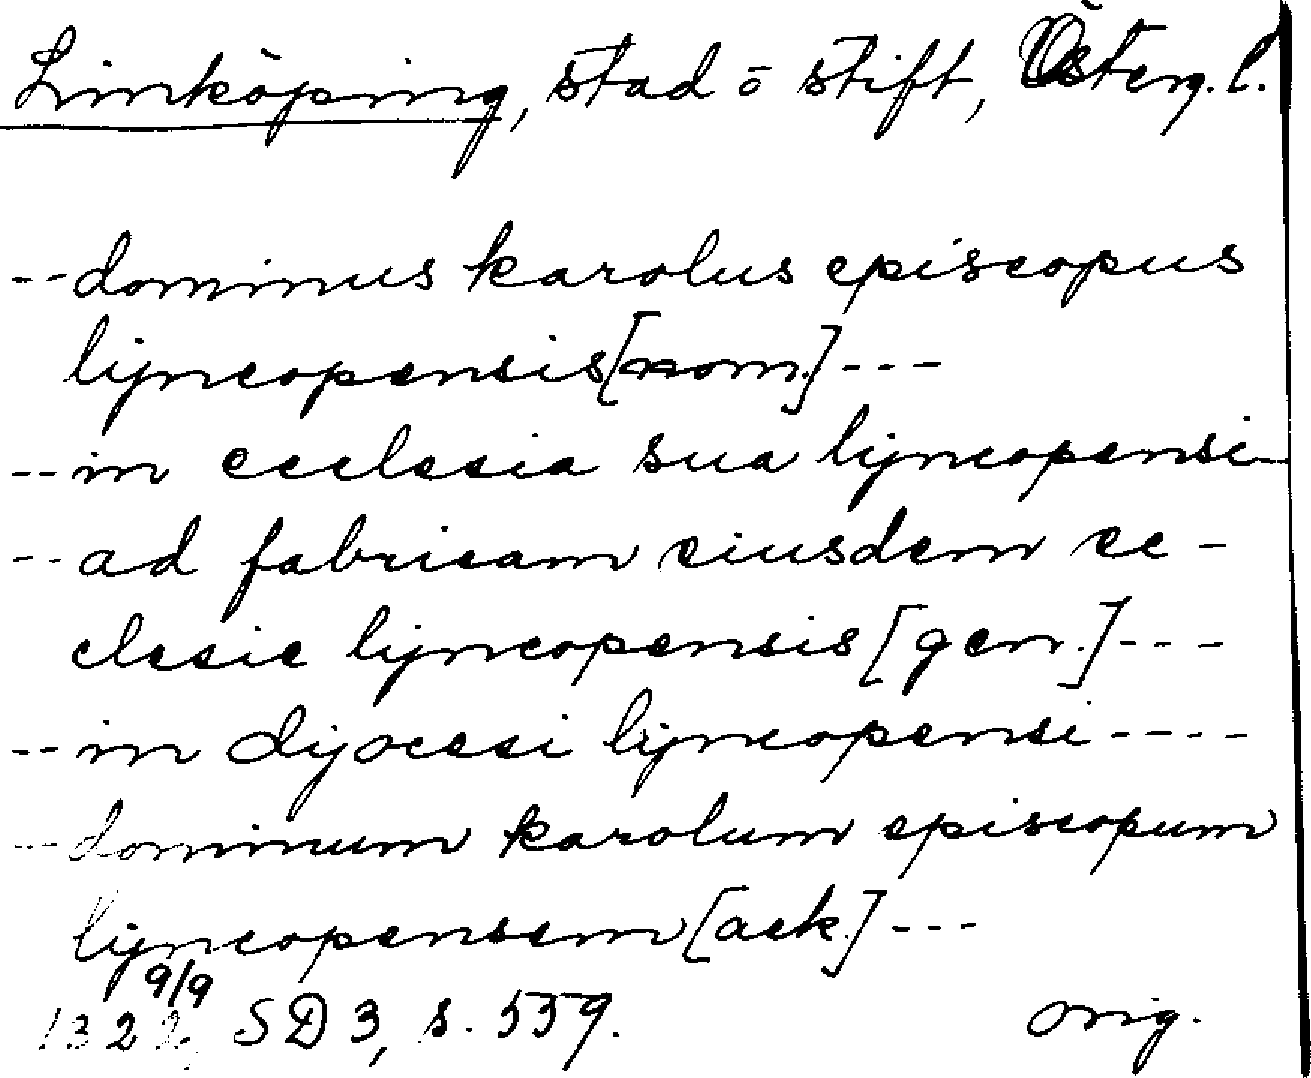 Linköping, stad o stift, Österg. l.
-- dominus karolus episcopus
lyncopensis [nom.] ---
-- in ecclesia sua lyncopensi --
-- ad fabricam eiusdem ec-
clesie lyncopensis [gen.] ---
-- in dyocesi lyncopensi ----
-- dominum karolum episcopum
lyncopensem [ack.] ---
9/9
1322, SD 3, s. 559. orig.